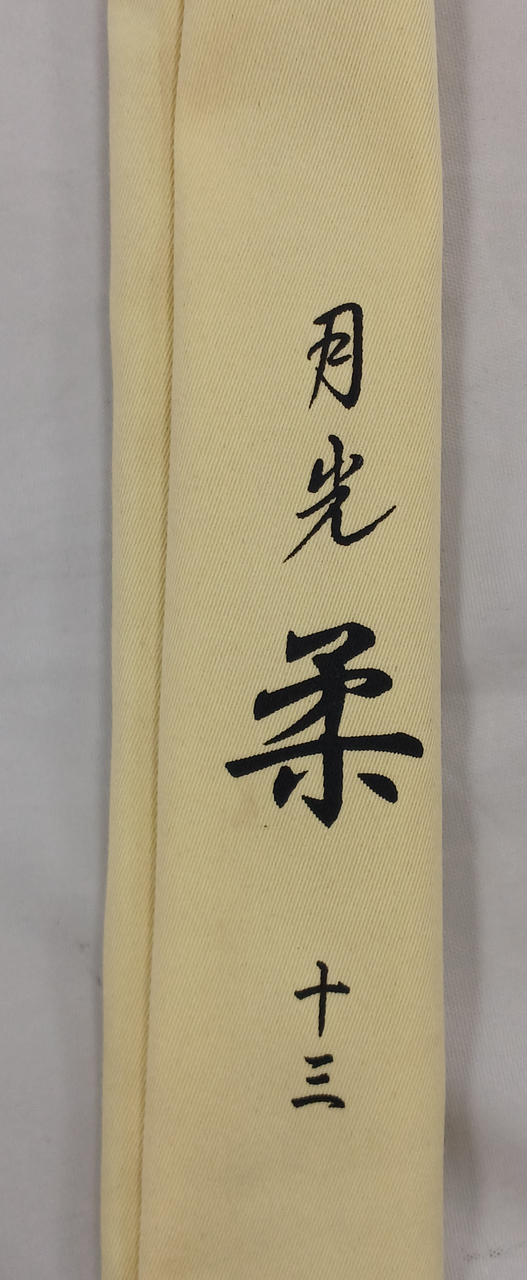 月光
柔
十三